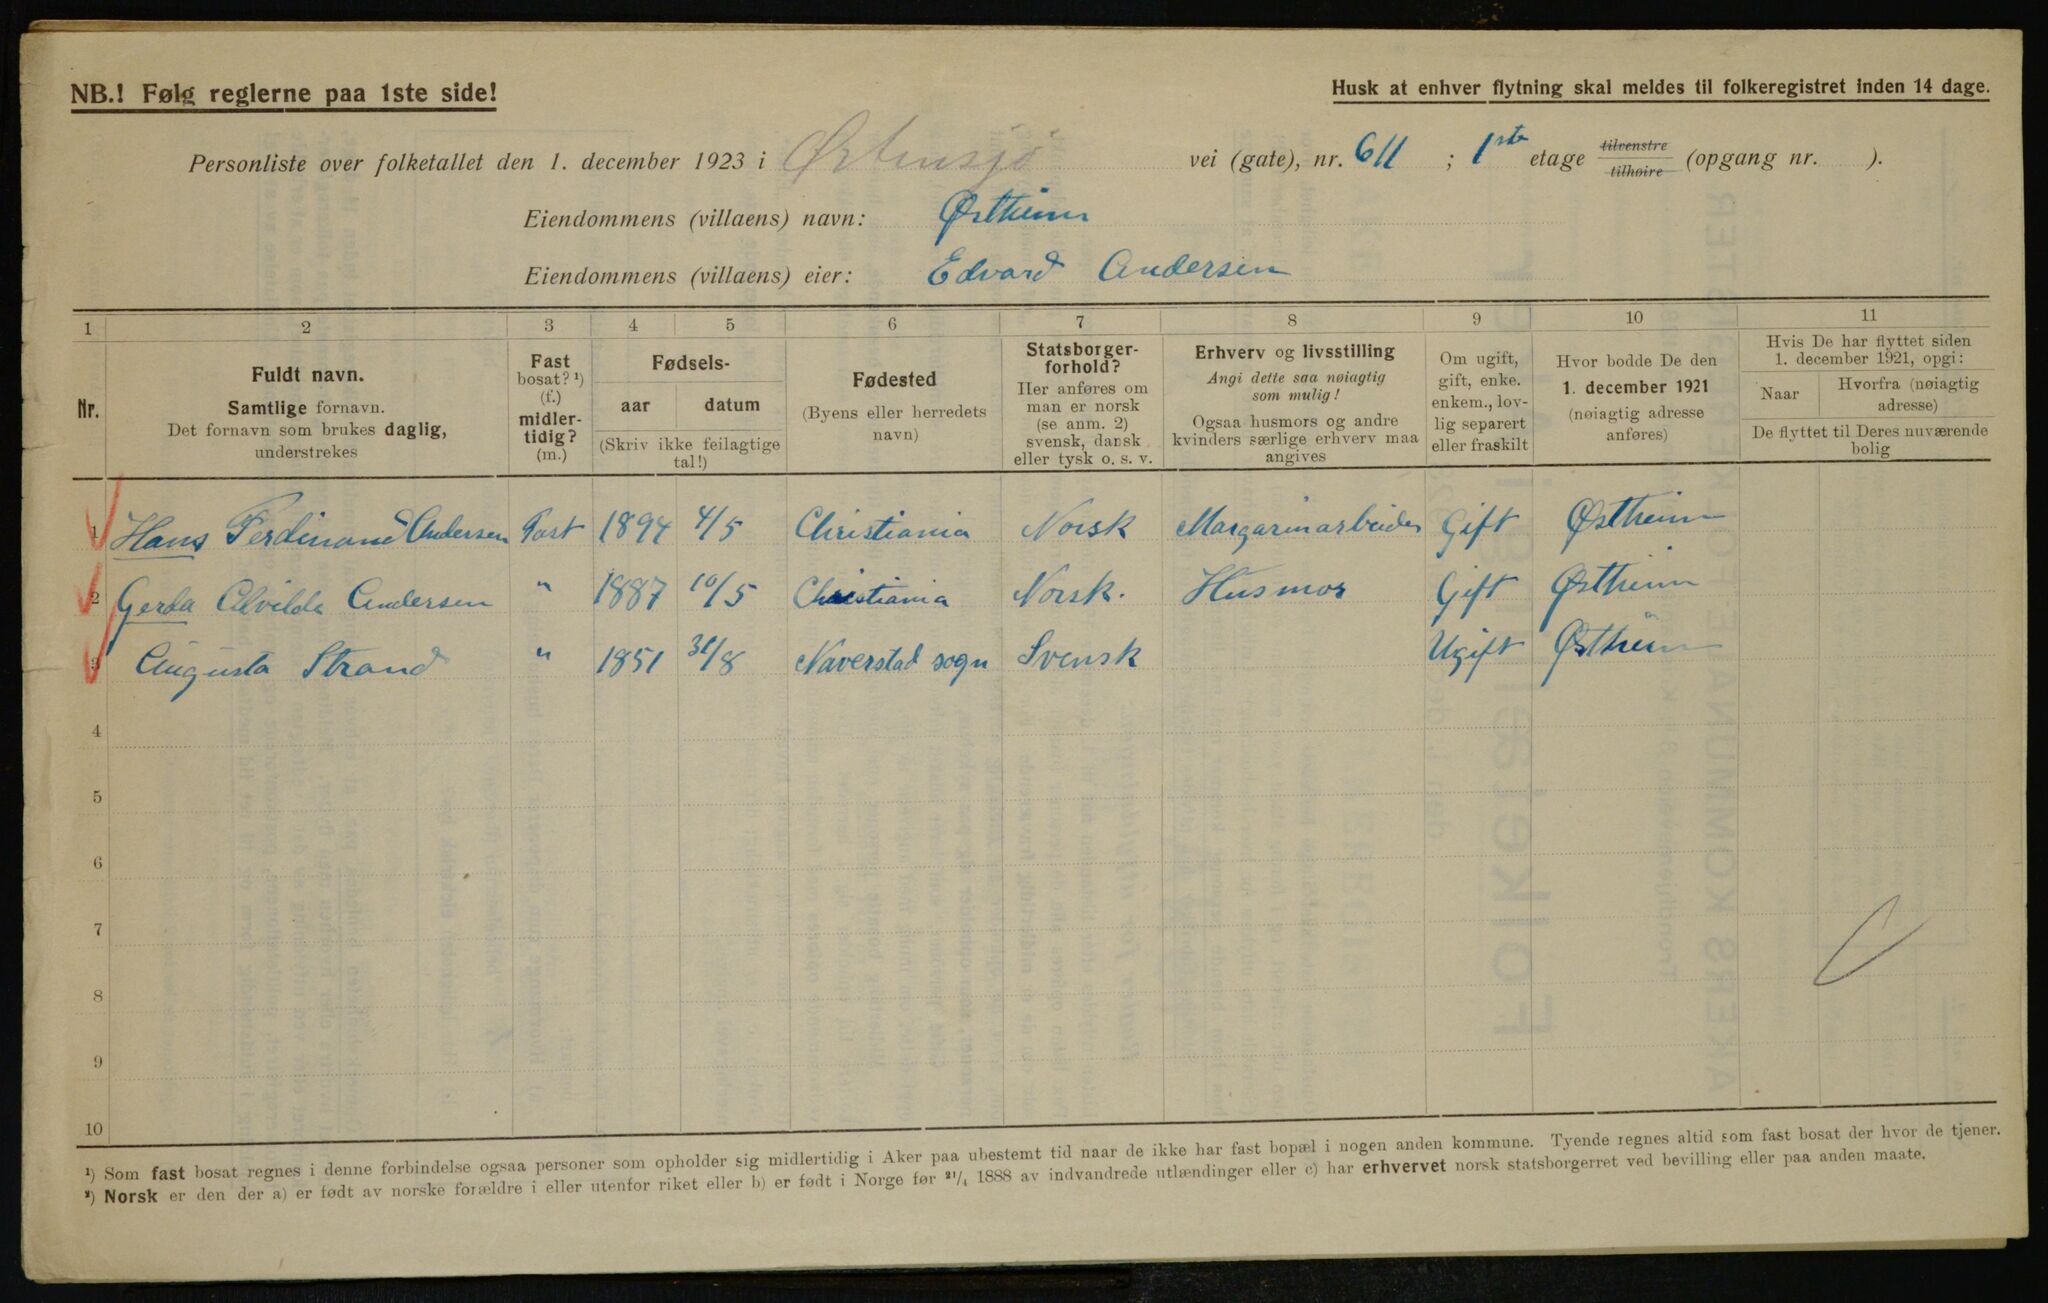 NB.! Følg reglerne paa 1ste side!
Husk at enhver flytning skal meldes til folkeregistret inden 14 dage.
Personliste over folketallet den 1. december 1923 i Østensjø vei (gate), nr. 611 ; 1ste etage tilvenstre tilhøire (opgang nr. ).
Eiendommens (villaens) navn: Østheim
Eiendommens (villaens) eier: Edvard Andersen
1 2 3 4 5 6 7 8 9 10 11
Nr.
Fuldt navn.
Samtlige fornavn.
Det fornavn som brukes daglig,
understrekes
Fast
bosat? ¹)
(f.)
midler-
tidig?
(m.)
Fødsels-
aar datum
(Skriv ikke feilagtige
tal!)
Fødested
(Byens eller herredets
navn)
Statsborger-
forhold?
Her anføres om
man er norsk
(se anm. 2)
svensk, dansk
eller tysk o. s. v.
Erhverv og livsstilling
Angi dette saa nøiagtig
som mulig!
Ogsaa husmors og andre
kvinders særlige erhverv maa
angives
Om ugift,
gift, enke.
enkem., lov-
lig separert
eller fraskilt
Hvor bodde De den
1. december 1921
(nøiagtig adresse
anføres)
Hvis De har flyttet siden
1. december 1921, opgi:
Naar
Hvorfra (nøiagtig
adresse)
De flyttet til Deres nuværende
bolig
1 Hans Ferdinand Andersen Fast 1894 4/5 Christiania Norsk Margarinarbeider Gift Østheim
2 Gerda Alvilda Andersen " 1887 10/5 Christiania Norsk. Husmor Gift Østheim
3 Augusta Strand " 1851 31/8 Naverstad sogn Svensk Ugift Østheim
4
5
6
7
8
9
10
¹) Som fast bosat regnes i denne forbindelse ogsaa personer som opholder sig midlertidig i Aker paa ubestemt tid naar de ikke har fast bopæl i nogen anden kommune. Tyende regnes altid som fast bosat der hvor de tjener.
²) Norsk er den der a) er født av norske forældre i eller utenfor riket eller b) er født i Norge før ²¹/₄ 1888 av indvandrede utlændinger eller c) har erhvervet norsk statsborgerret ved bevilling eller paa anden maate.